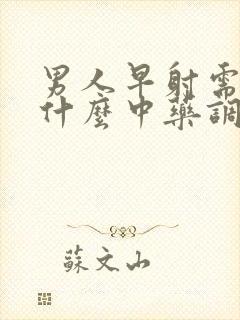 男人早射需
什麼中藥調
蘇文山